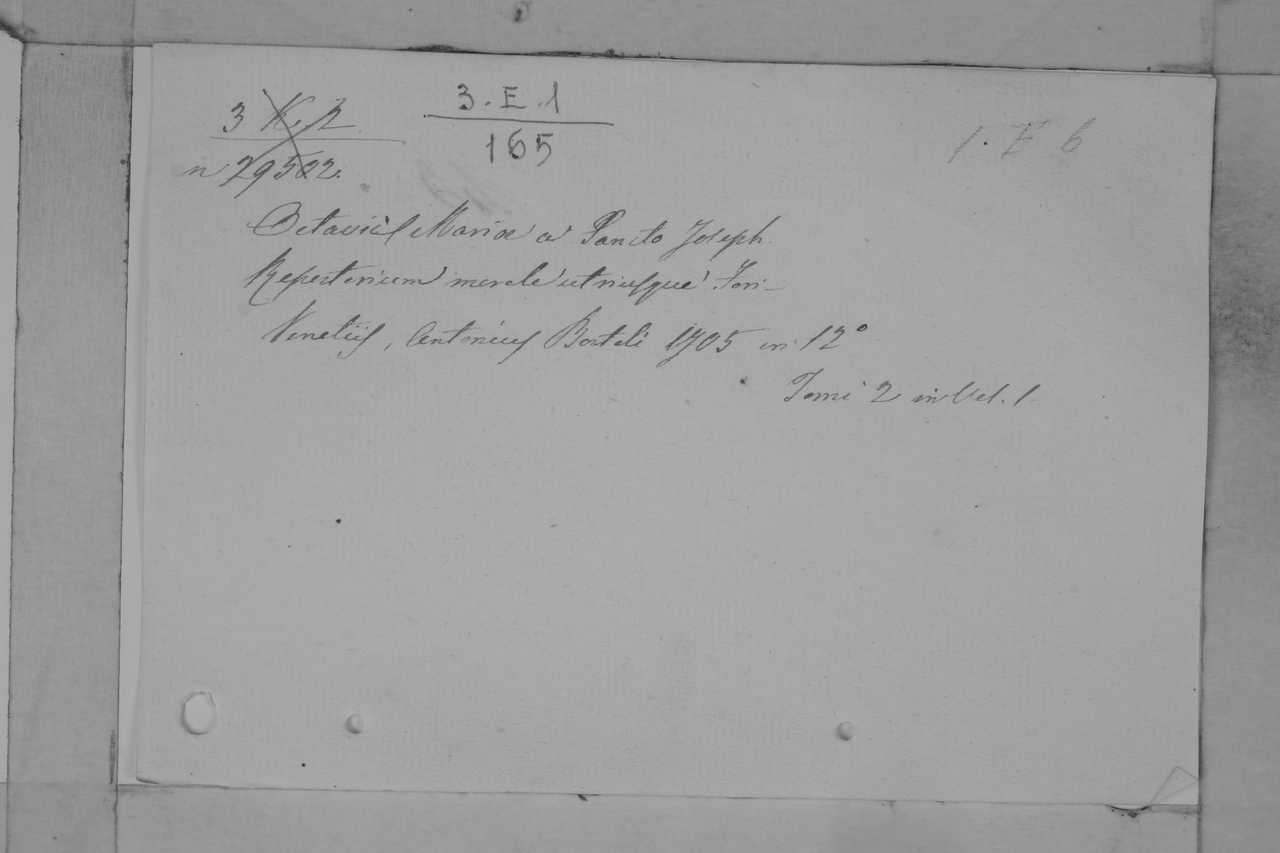 3 K. 2 3.E.1 1. E 6
n 29502. 165
Octavii Mariæ a Sancto Joseph.
Repertorium morale utriusque Fori-
Venetiis, Antonius Bortoli 1705 in 12°
Tomi 2 in Vol. 1